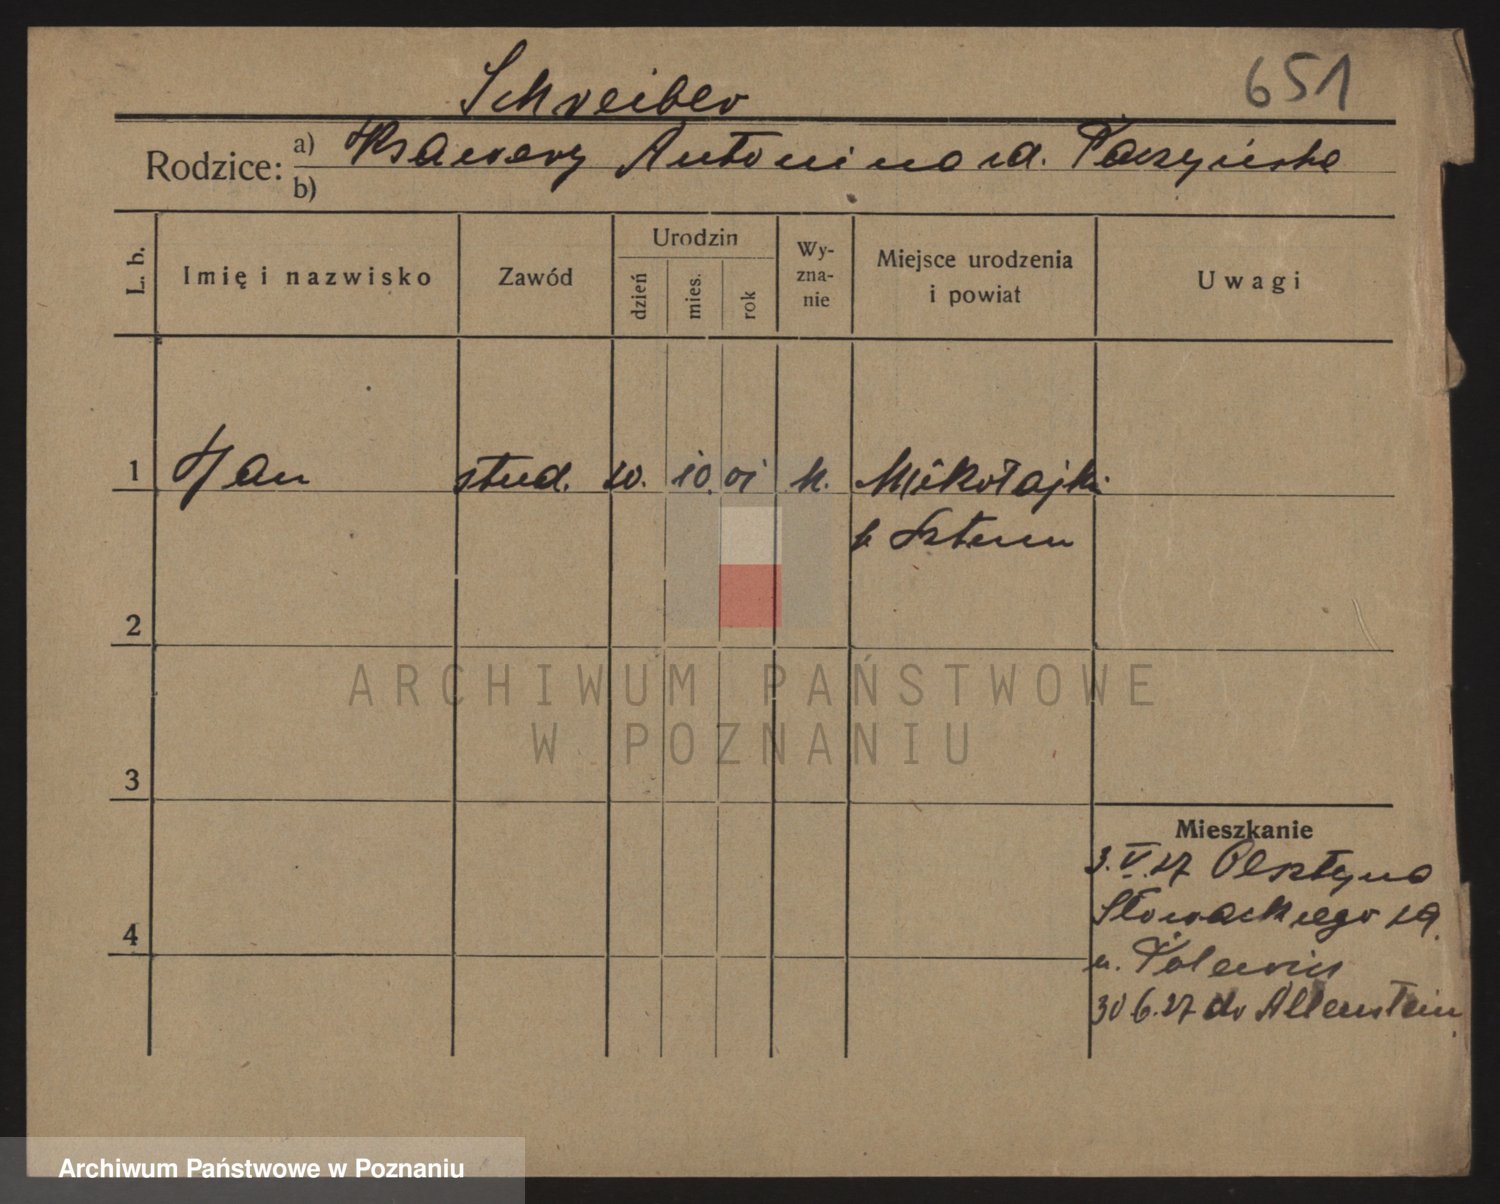 651
Schreiber
Rodzice: a) Ksawery Antonina zd.
b)
L. b.
Imię i nazwisko
Zawód
Urodzin
dzień
mies.
rok
Wy-
zna-
nie
Miejsce urodzenia
i powiat
Uwagi
1 Jan stud. 10. 10. 01 k. Mikołajki
p Sztum
2
3
4
Mieszkanie
3.V.27 Olsztyna
Słowackiego 19.
u.
30 6.27 do Allenstein
ARCHIWUM PAŃSTWOWE
W POZNANIU
Archiwum Państwowe w Poznaniu